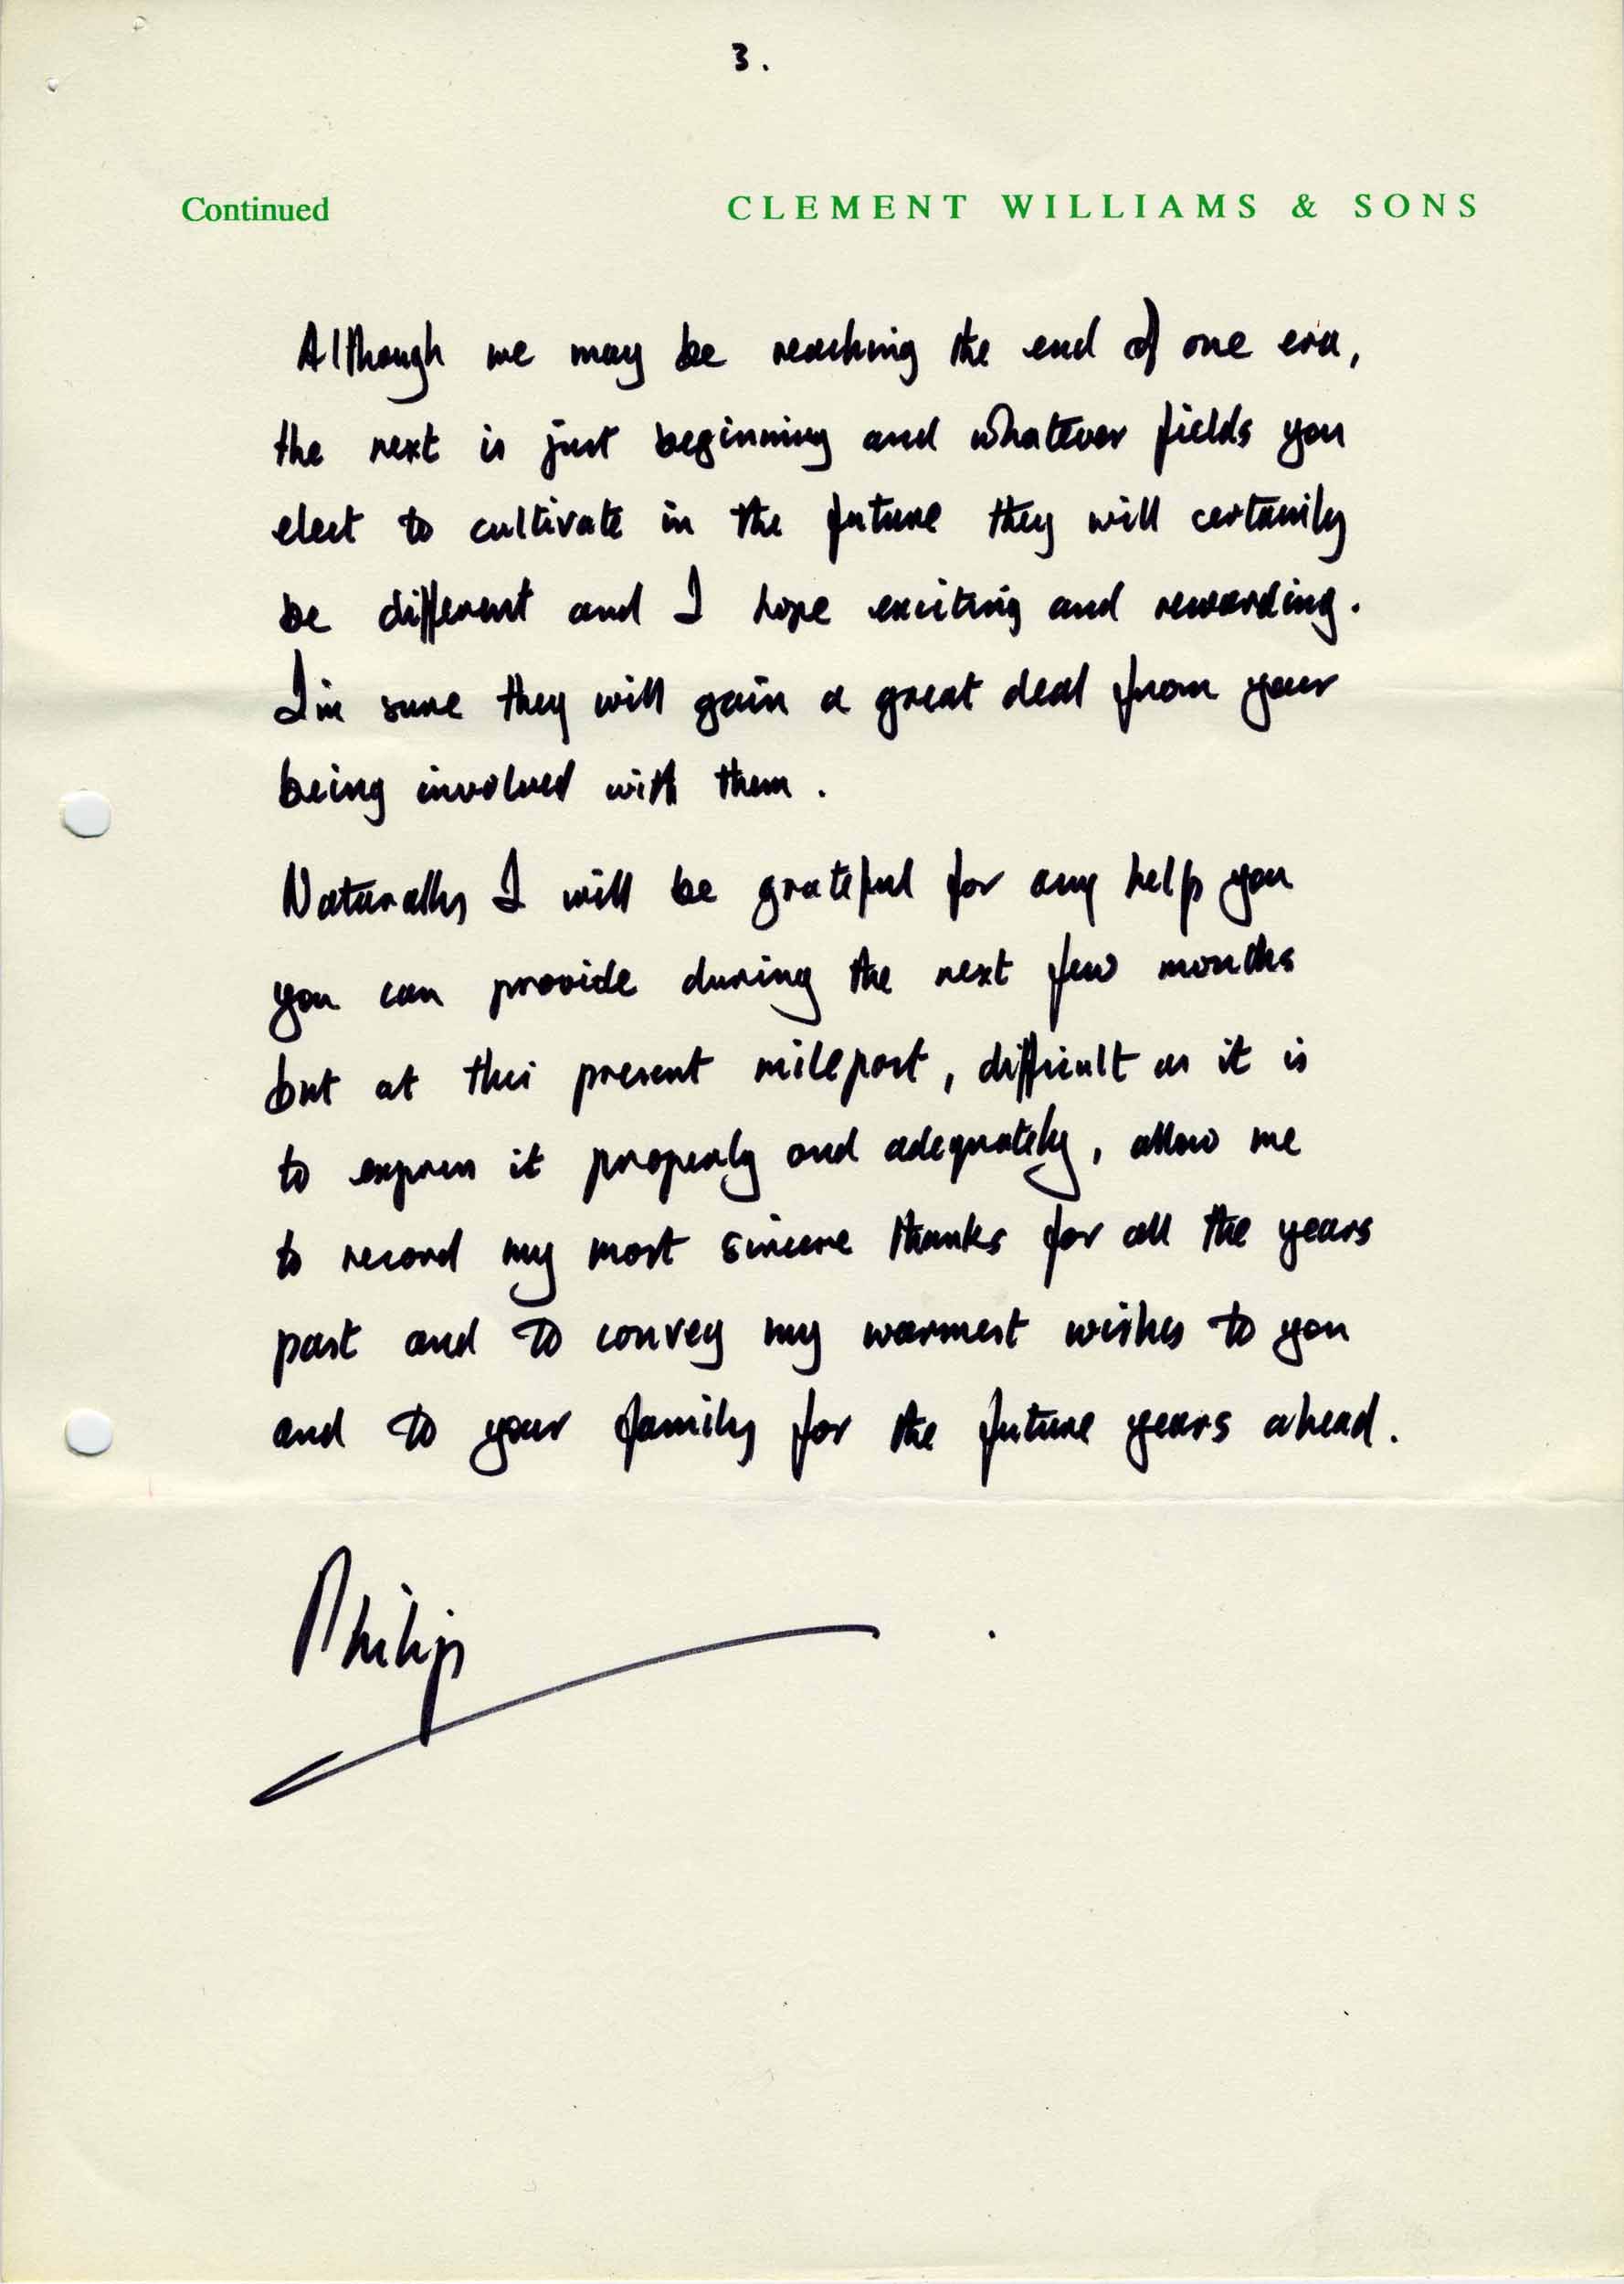 3.
Continued CLEMENT WILLIAMS & SONS
Although we may be reaching the end of one era,
the next is just beginning and whatever fields you
elect to cultivate in the future they will certainly
be different and I hope exciting and rewarding.
I'm sure they will gain a great deal from your
being involved with them.
Naturally I will be grateful for any help you
you can provide during the next few months
but at this present milepost, difficult as it is
to express it properly and adequately, allow me
to record my most sincere thanks for all the years
past and to convey my warmest wishes to you
and to your family for the future years ahead.
Philip